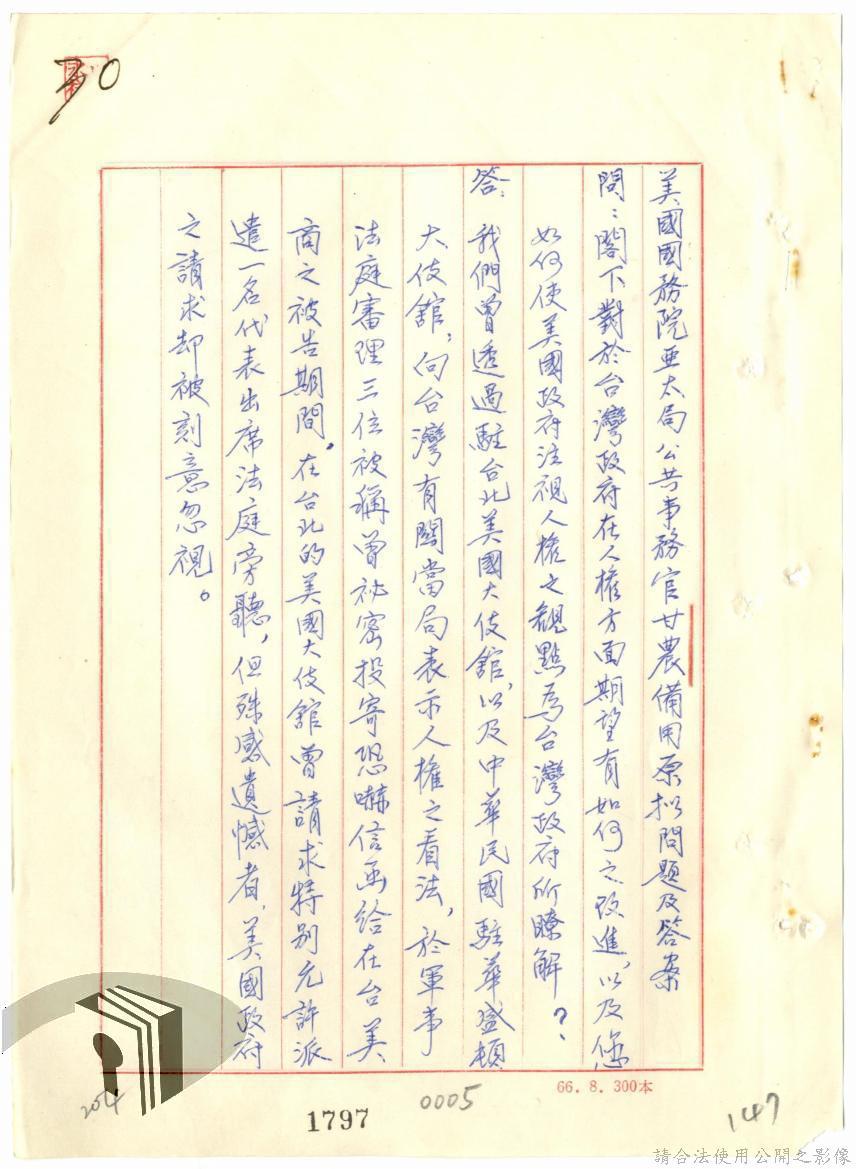 30
美國國務院亞太局公共事務官甘農備用原擬問題及答案
問：閣下對於台灣政府在人權方面期望有如何之改進，以及您
如何使美國政府注視人權之観點為台灣政府所瞭解？
答：我們曾透過駐台北美國大使舘，以及中華民國駐華盛頓
大使舘，向台灣有關當局表示人權之看法，於軍事
法庭審理三位被稱曾祕密投寄恐嚇信函給在台美
商之被告期間，在台北的美國大使舘曾請求特別允許派
遣一名代表出席法庭旁聽，但殊感遺憾者，美國政府
之請求却被刻意忽視。
66.8.300本
204
1797
0005
147
請合法使用公開之影像